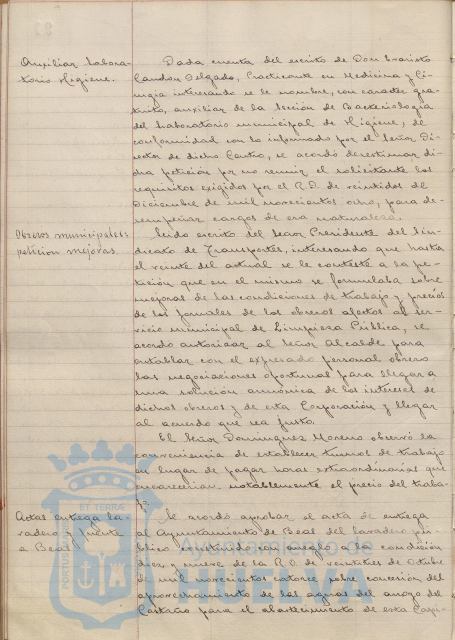 Auxiliar labora-
torio Higiene.
Dada cuenta del escrito de Don Evaristo
Landon Delgado, Practicante en Medicina y Ci-
rugia interesando se le nombre, con caracter gra-
tuito, auxiliar de la Sección de Bacteriologia
del Laboratorio municipal de Higiene, de
conformidad con lo informado por el Señor Di-
rector de dicho Centro, se acordó desestimar di-
cha petición por no reunir el solicitante los
requisitos exigidos por el R.D. de veintidos de
Diciembre de mil novecientos ocho, para de-
sempeñar cargos de esa naturaleza.
Obreros municipales:
peticion mejoras.
Leido escrito del Señor Presidente del Sin-
dicato de Transportes, interesando que hasta
el veinte del actual se le conteste a la pe-
tición que en el mismo se formulaba sobre
mejoras de las condiciones de trabajo y precios
de los jornales de los obreros afectos al ser-
vicio municipal de Limpieza Pública, se
acordó autorizar al Señor Alcalde para
entablar con el expresado personal obrero
las negociaciones oportunas para llegar a
una solución armónica de los intereses de
dichos obreros y de esta Corporación y llegar
al acuerdo que sea justo.
El Señor Dominguez Moreno observó la
conveniencia de establecer turnos de trabajo
en lugar de pagar horas extraordinarias que
encarecerian notablemente el precio del traba-
jo.
Actas entrega la-
vadero y fuente
a Beas
Se acordó aprobar el acta de entrega
al Ayuntamiento de Beas del lavadero pú-
blico construido con arreglo a la condición
diez y nueve de la R.O. de veintitres de Octubre
de mil novecientos catorce sobre concesión del
aprovechamiento de las aguas del arroyo del
Castaño para el abastecimiento de esta Capi-
PORTUS
ET TERRAE
Ayuntamiento de
HUELVA